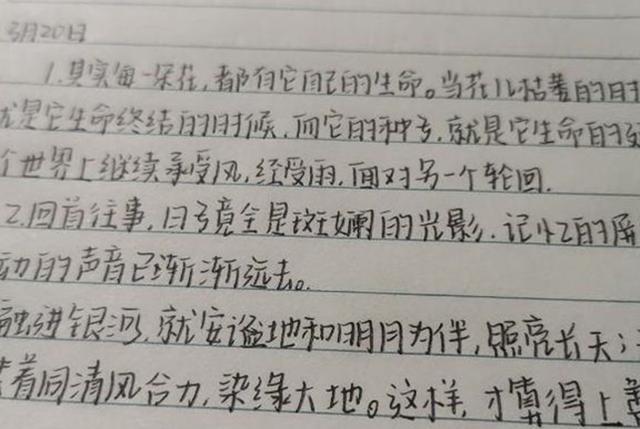 3月20日
1.其实每一朵花,都有它自己的生命。当花儿枯萎的时
就是它生命终结的时候,而它的种子,就是它生命的
个世界上继续承受风,经受雨,面对另一个轮回.
2.回首往事,日子竟全是斑斓的光影,记忆的屏
动的声音已渐渐远去。
融进银河,就安谧地和明月为伴,照亮长天;
着同清风合力,染绿大地。这样,才算得上